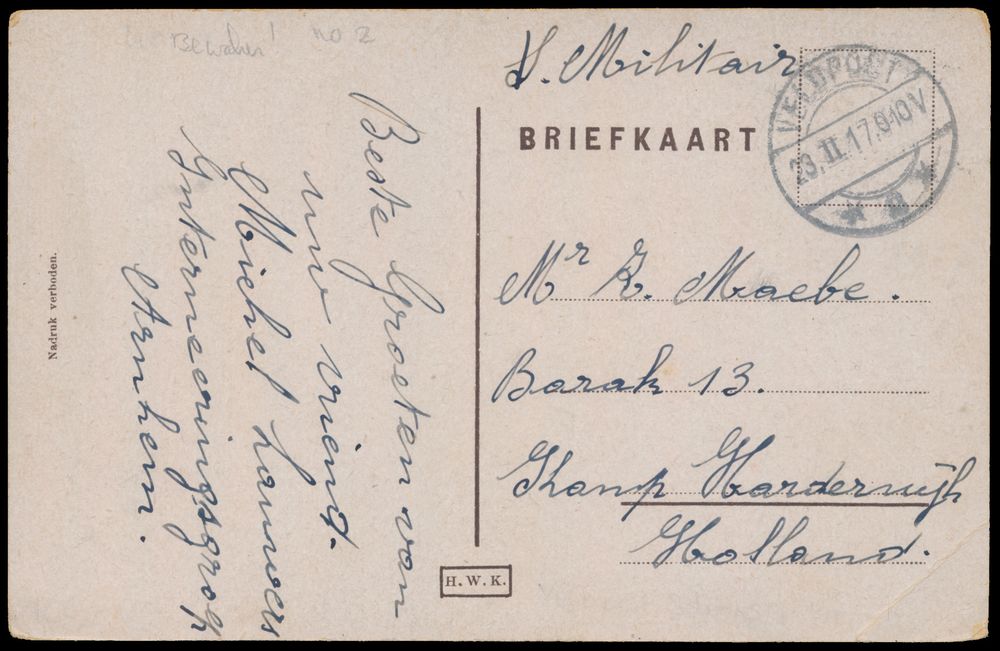 Bewaren! no 2
S. Militair
BRIEFKAART
VELDPOST
23.II.17.9-10V
Mr Z. Maebe.
Barak 13.
Kamp Harderwijk
Holland.
Beste Groeten van
uw vriend.
Michel Lauwers
Interneeringsgroep
Arnhem.
Nadruk verboden.
H.W.K.